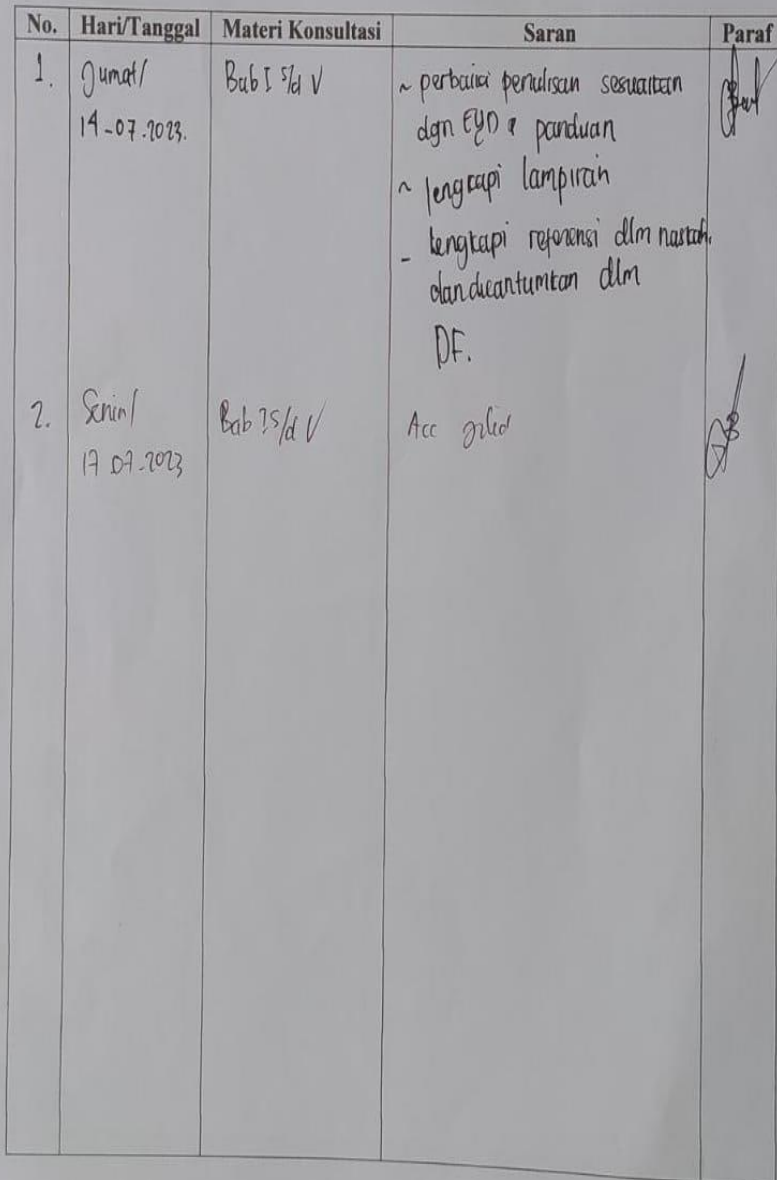 No. Hari/Tanggal Materi Konsultasi Saran Paraf
1. Jumat/ Bab I s/d V ~ perbaiki penulisan sesuaikan
14-07-2023. dgn EYD & panduan
~ lengkapi lampiran
- lengkapi referensi dlm naskah.
dan dicantumkan dlm
DF.
2. Senin/ Bab I s/d V Acc
17 07-2023